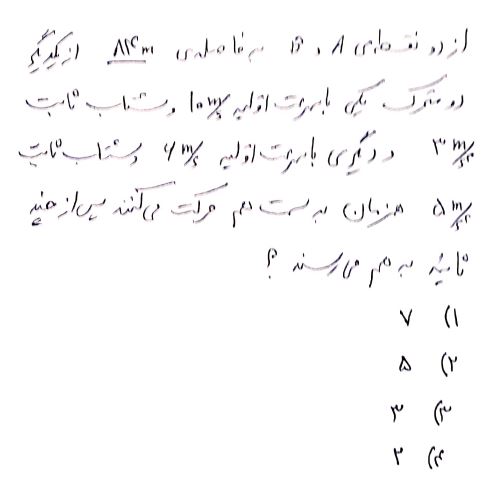 از دو نقطه‌ی A و B به فاصله‌ی ۸۴m از یکدیگر
دو متحرک یکی با سرعت اولیه ۱۰ m/s و شتاب ثابت
۳ m/s² و دیگری با سرعت اولیه ۴ m/s و شتاب ثابت
۵ m/s² همزمان به سمت هم حرکت می‌کنند پس از چند
ثانیه به هم می‌رسند ؟
۱) ۷
۲) ۵
۳) ۳
۴) ۲